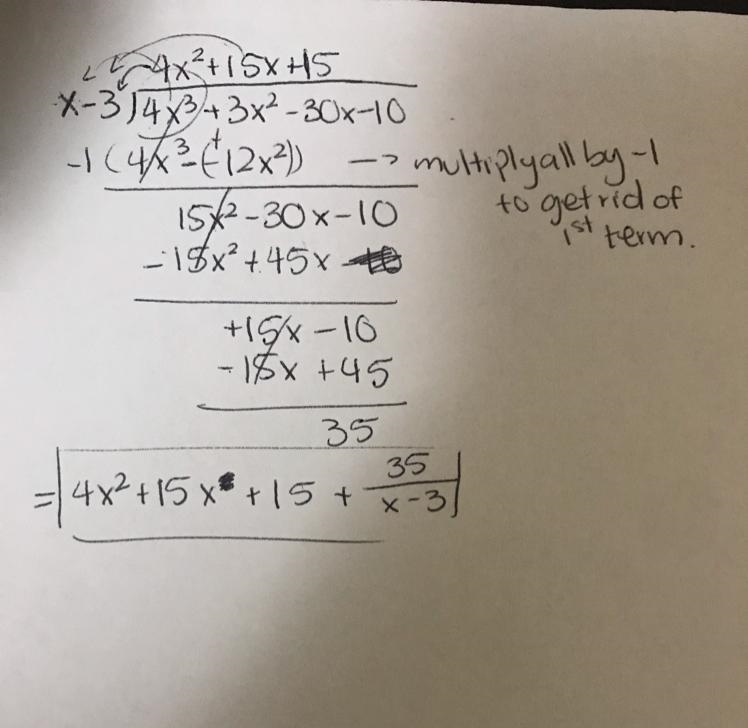 4x²+15x+15
x-3)4x³+3x²-30x-10
-1(4x³-(-12x²)) → multiply all by -1
to get rid of
1st term.
15x²-30x-10
-15x²+45x
+15x-10
-15x+45
35
=4x²+15x+15+35/(x-3)